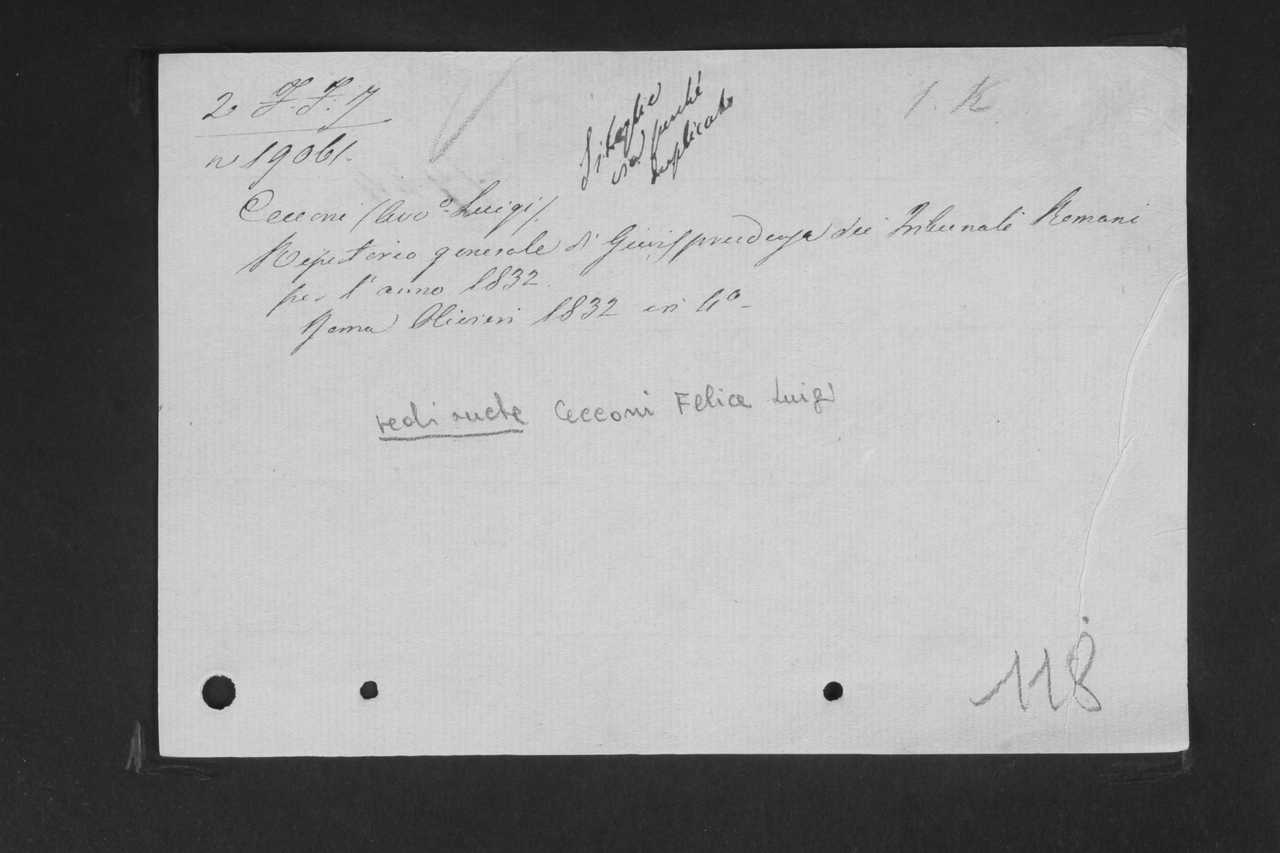 2 F. F. 7
n 19061.
Si toglie
via perché
duplicato
1. K
Cecconi (Avvo. Luigi).
Repertorio generale di Giurisprudenza dei Tribunali Romani
per l'anno 1832.
Roma Olivieri 1832 in 4o-
vedi anche Cecconi Felice Luigi
118